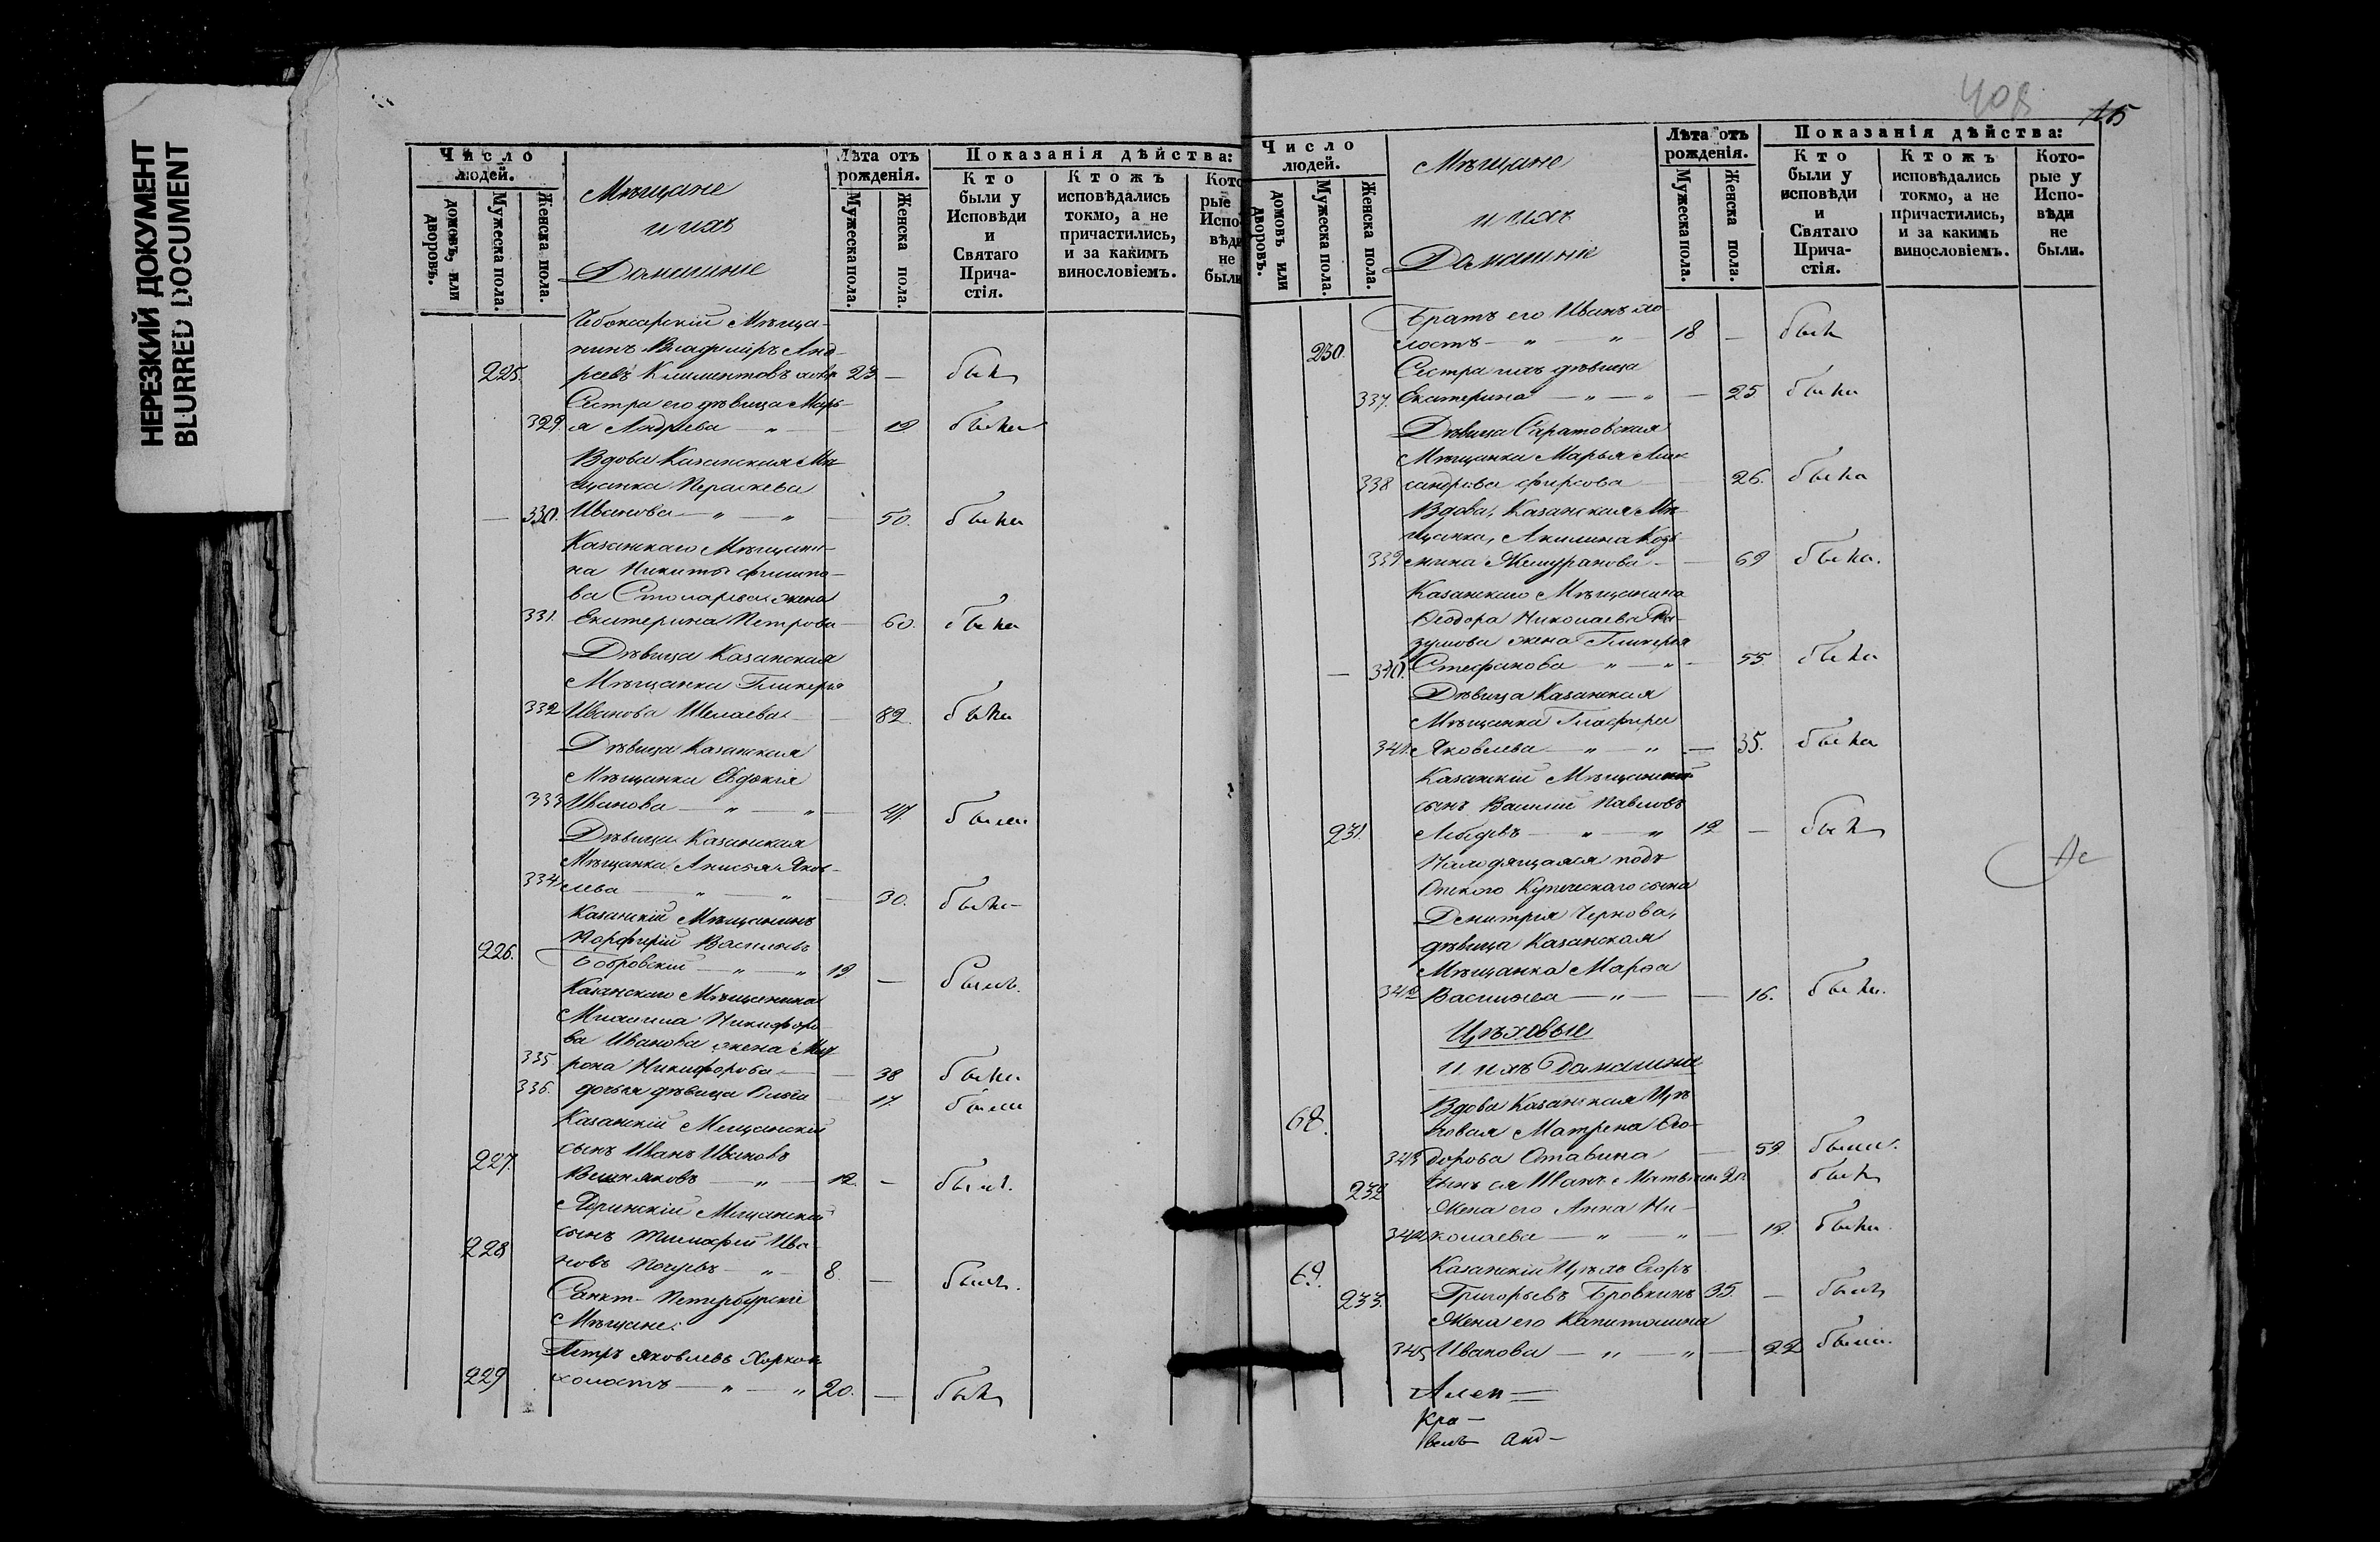 НЕРЕЗКИЙ ДОКУМЕНТ
BLURRED DOCUMENT
Число людей.
домовъ, или дворовъ.
Мужеска пола.
Женска пола.
Мѣщане
и ихъ
Домашніе
Лѣта отъ рожденія.
Мужеска пола.
Женска пола.
Показанія дѣйства:
Кто были у Исповѣди и Святаго Причастія.
Ктожъ исповѣдались токмо, а не причастились, и за какимъ винословіемъ.
Кото
рые
Испо
вѣди
не
были
Чебоксарскій Мѣща-
нинъ Владиміръ Анд-
225. реевъ Климентовъ 23 — былъ
Сестра его дѣвица Марь-
329. я Андреева — " — 19 была
Вдова Казанская Мѣ-
щанка Параскева
— 330. Иванова — " — " — 50. была
Казанскаго Мѣщани-
на Никиты Филипо-
ва Столярова жена
331. Екатерина Петрова — 60. была
Дѣвица Казанская
Мѣщанка Гликерія
332 Иванова — 82. была
Дѣвица Казанская
Мѣщанка Евдокія
333 Иванова — " — " — была
Дѣвица Казанская
Мѣщанка Анисья Яков-
334 лева — " — " — 30. была
Казанскій Мѣщанинъ
Порфирій Васильевъ
226. Бобровскій — " — " 19 — былъ.
Казанскаго Мѣщанина
Михаила Никифоро-
ва Иванова жена Мат
335 рона Никифорова — 38 была
336. дочь ея дѣвица Ольга — 17. была
Казанскій Мещанскій
сынъ Иванъ Ивановъ
227. Вишняковъ — " — 12. — былъ.
Ядринскій Мещанскій
сынъ Тимофей Ива-
228 новъ — " — 8. — былъ.
Санкт-Петербургскіе
Мѣщане:
Петръ Яковлевъ
229 холостъ — " — " 20. — былъ
408
115
Число людей.
домовъ или дворовъ.
Мужеска пола.
Женска пола.
Мѣщане
и ихъ
Домашніе
Лѣта отъ рожденія.
Мужеска пола.
Женска пола.
Показанія дѣйства:
Кто были у исповѣди и Святаго Причастія.
Ктожъ исповѣдались токмо, а не причастились, и за какимъ винословіемъ.
Которые у Исповѣди не были.
Братъ его Иванъ хо-
230. лостъ — " — " — 18 — былъ
Сестра ихъ дѣвица
337. Екатерина — " — " — 25 была
Дѣвица Саратовская
Мѣщанка Марья Алек
338 сандрова Фирсова — 26. была
Вдова, Казанская Мѣ-
щанка, Акилина Козь
339 мина — 69 была.
Казанскаго Мѣщанина
Ѳеодора Николаева Ра-
зумова жена Гликерія
— 340. Стефанова — " — " — 55. была
Дѣвица Казанская
Мѣщанка Глафира
341. Яковлева — " — " — 35. была
Казанскій Мѣщанскій
сынъ Василій Павловъ
231. Лебедевъ — " — " 19 — былъ
Находящаяся подъ
Опекою Купеческаго сына
Димитрія Чернова,
дѣвица Казанская
Мѣщанка Марѳа
342 Васильева — " — — 16. была.
Цѣховые
и ихъ Домашніе
68. Вдова Казанская Цѣ
ховая Матрена Ѳео-
343 дорова — 59. была.
232 сынъ ея Иванъ былъ
Жена его Анна Ни-
344 колаева — " — " — 19. была.
69. Казанскій Цѣхов. Егоръ
233. Григорьевъ Бровкинъ 35. — былъ
Жена его Капитолина
345 Иванова — " — " — 22 была.